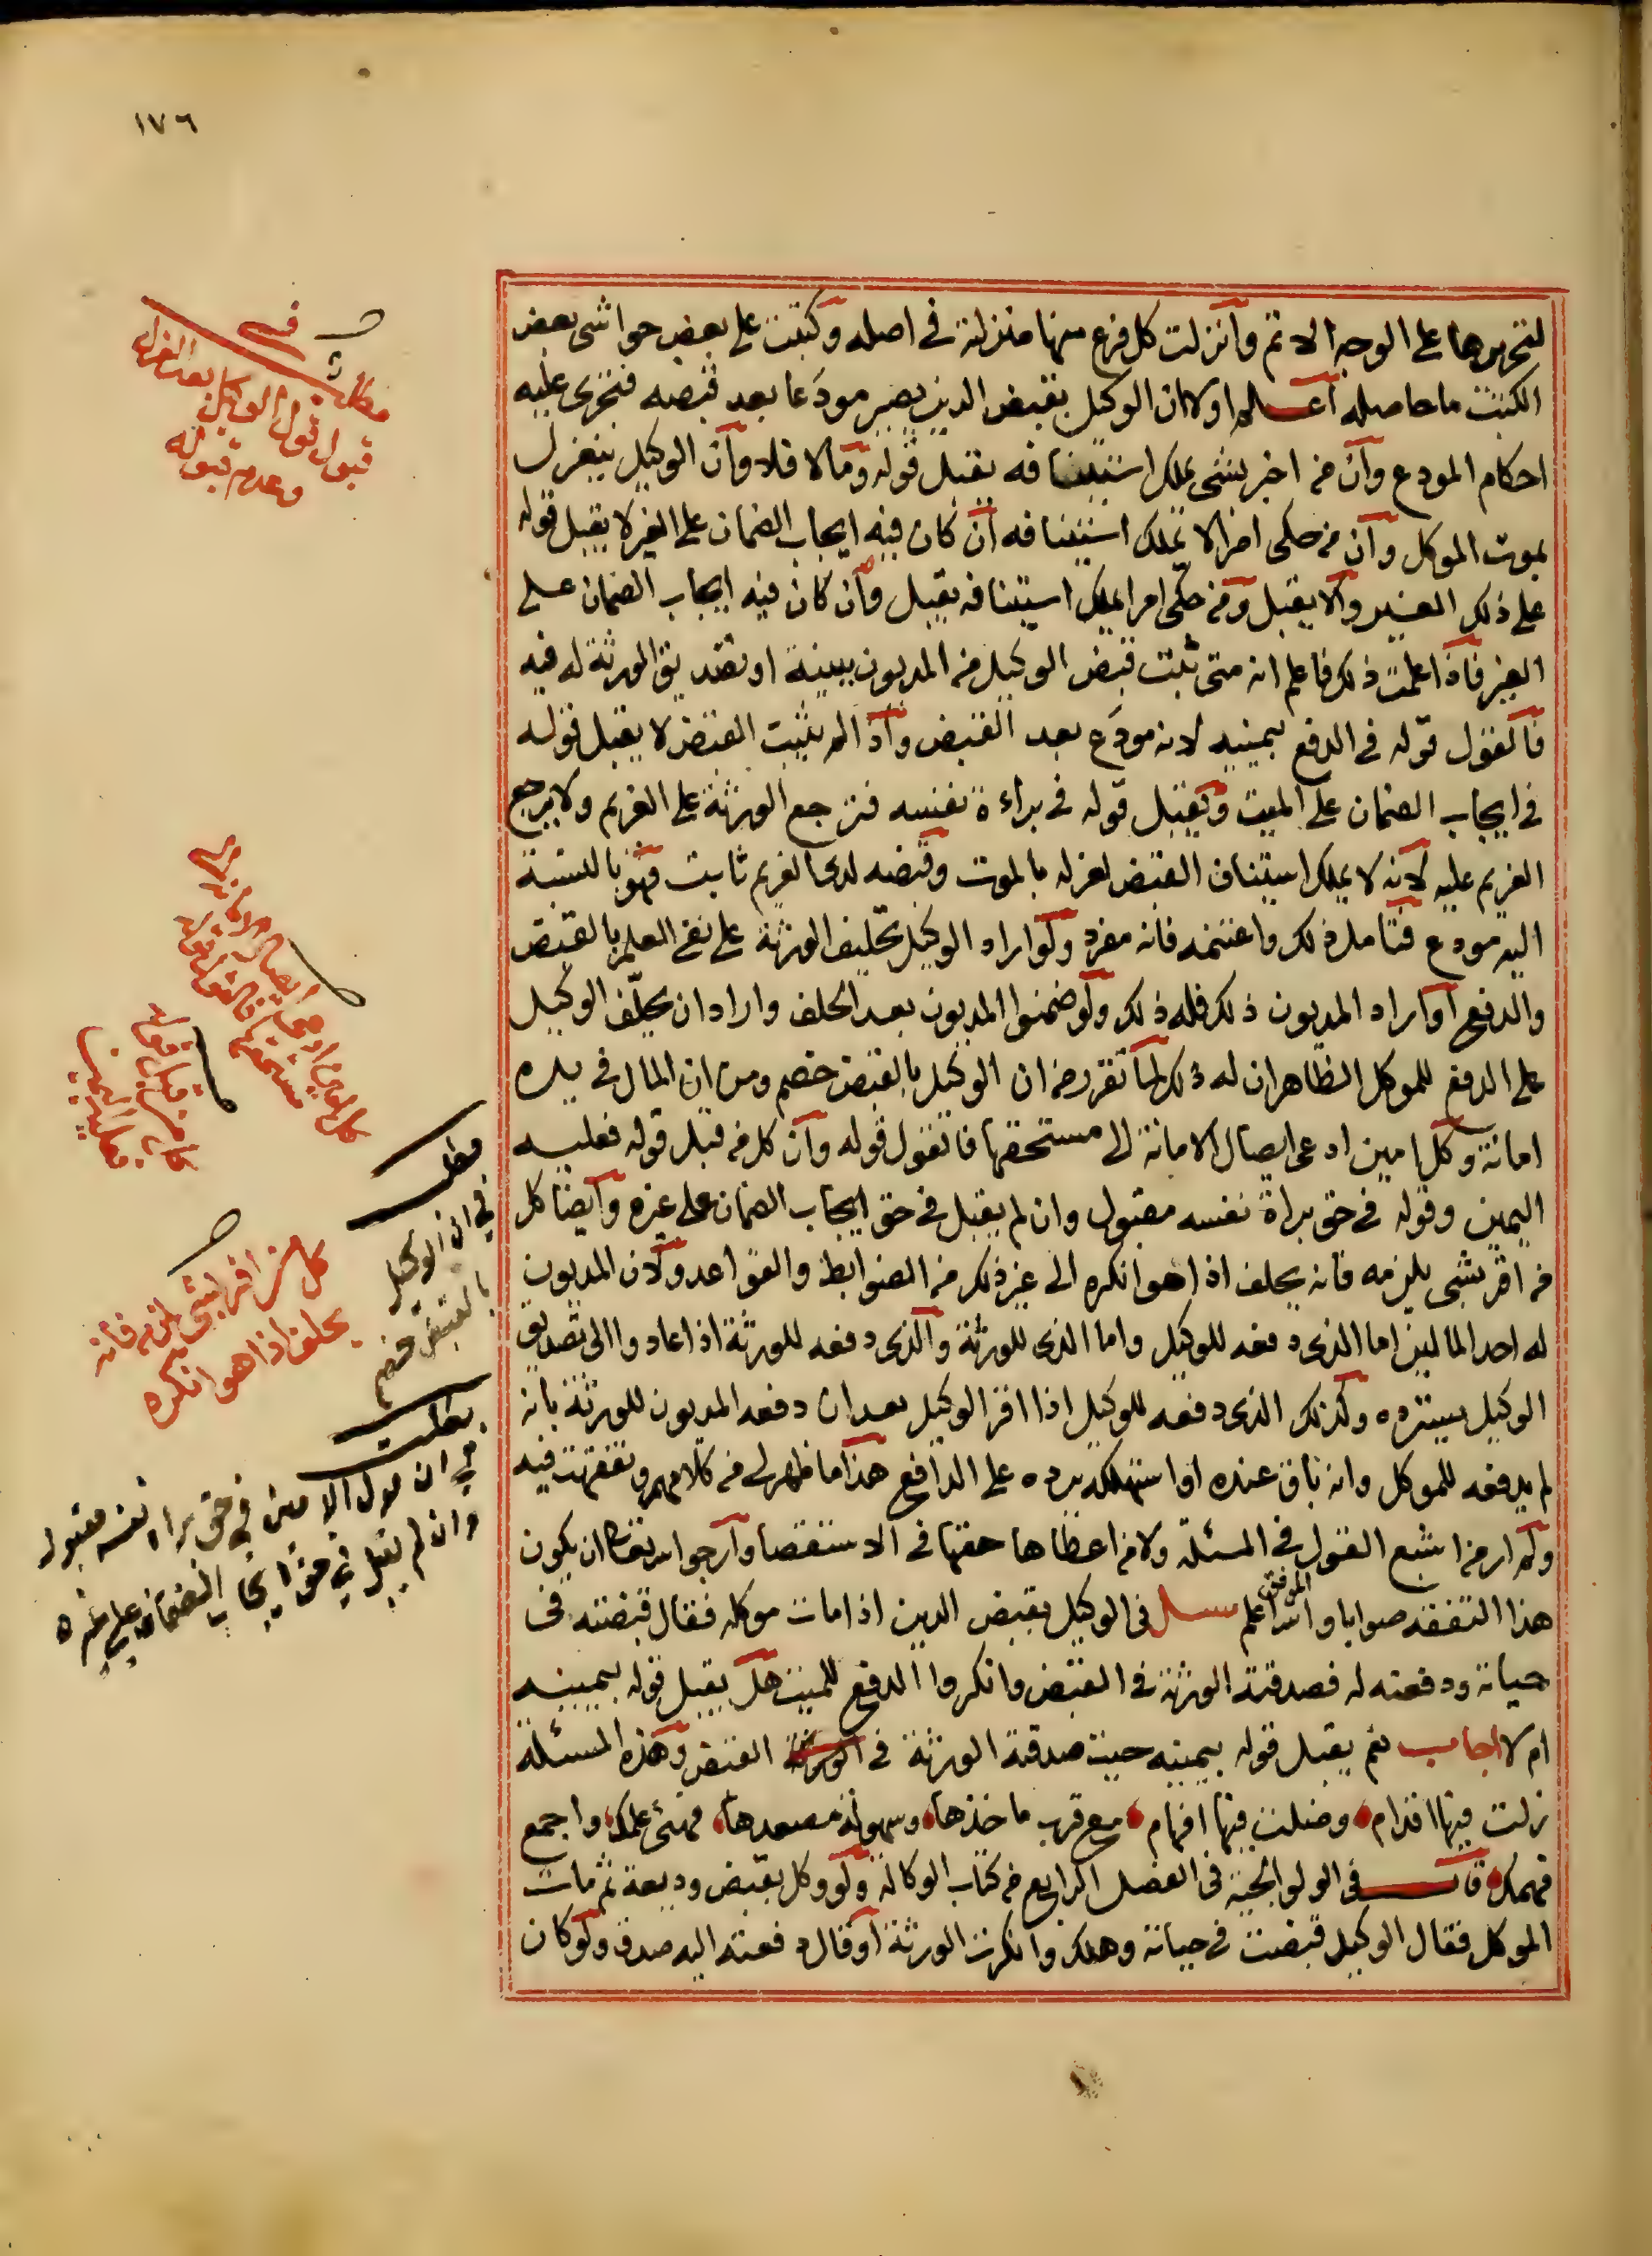 ١٧٦
لتحريرها على الوجه الاتم وأنزلت كل فرع منها منزلته في اصله وكتبت على بعض حواشى بعض
الكتب ما حاصله اعلم اولا ان الوكيل بقبض الدين يصير مودَعا بعد قبضه فتجرى عليه
احكام المودع وأن من اخبر بشى يملك استينافه يقبل قوله وما لا فلا وأن الوكيل ينعزل
بموت الموكل وأن من حكى امرا لا يملك استينافه ان كان فيه ايجاب الضمان على الغير لا يقبل قوله
على ذلك الغير والا يقبل ومن حكى امرا يملك استينافه يقبل وان كان فيه ايجاب الضمان على
الغير فاذا علمت ذلك فاعلم انه متى ثبت قبض الوكيل من المديون ببينة او بتصديق الورثة له فيه
فالقول قوله في الدفع بيمينه لانه مودَع بعد القبض واذا لم يثبت القبض لا يقبل قوله
في ايجاب الضمان على الميت ويقبل قوله في براءة نفسه فترجع الورثة على الغريم ولا يرجع
الغريم عليه لانه لا يملك استيناف القبض لعزله بالموت وقبضه لدى الغريم ثابت فهو بالنسبة
اليه مودع فتامل ذلك واغتنمه فانه مفرد ولو اراد الوكيل تحليف الورثة على نفي العلم بالقبض
والدفع او اراد المديون ذلك فله ذلك ولو ضمنوا المديون بعد الحلف واراد ان يحلّف الوكيل
على الدفع للموكل الظاهر ان له ذلك لما تقرر من ان الوكيل بالقبض خصم ومن ان المال في يده
امانة وكل امين ادعى ايصال الامانة الى مستحقها فالقول قوله وأن كل من قبل قوله فعليه
اليمين وقوله في حق براة نفسه مقبول وان لم يقبل في حق ايجاب الضمان على غيره وأيضا كل
من اقر بشى يلزمه فانه يحلف اذا هو انكره الى غير ذلك من الضوابط والقواعد ولان المديون
له احد المالين اما الذى دفعه للوكيل واما الذى للورثة والذى دفعه للورثة اذا عادوا الى تصديق
الوكيل يسترده وكذلك الذى دفعه للوكيل اذا اقر الوكيل بعد ان دفعه المديون للورثة بأنه
لم يدفعه للموكل وانه باق عنده او استهلكه يرده على الدافع هذا ما ظهر لي من كلامهم وتفقهت فيه
ولم ار من اشبع القول في المسئلة ولا من اعطاها حقها في الاستقصا وأرجو الله تعالى ان يكون
هذا التفقه صوابا والله الموفق اعلم سئل في الوكيل بقبض الدين اذا مات موكله فقال قبضته في
حياته ودفعته له فصدقته الورثة في القبض وانكروا الدفع للميت هل يقبل قوله بيمينه
ام لا اجاب نعم يقبل قوله بيمينه حيث صدقة الورثة في القبض وهذه المسئلة
زلت فيها اقدام وضلت فيها افهام مع قرب ماخذها وسهولة مصعدها فهئ علمك واجمع
فهمك قال في الولوالجية في الفصل الرابع من كتاب الوكالة ولو وكل بقبض وديعة ثم مات
الموكل فقال الوكيل قبضت في حياته وهلك وانكرت الورثة أو قال دفعته اليه صدق ولو كان
مطلب في
قبول قول الوكيل بعد العزل
وعدم قبوله
كل امين ادعى ايصال الامانة الى
مستحقها فالقول قوله
كل من قبل قوله
فعليه اليمين
مطلب
في ان الوكيل
بالقبض خصم
كل من اقر بشى يلزمه فانه
يحلف اذا هو انكره
مطلب
في ان قول الامين في حق براة نفسه مقبول
وان لم يقبل في حق ايجاب الضمان على غيره